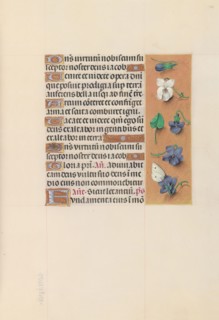 Dñs virtutũ nobiscum su
sceptor noster deus iacob
Venite et videte opera dñi
que posuit prodigia sup terrã
auferens bella usq; ad finẽ tẽr
conteret et confringet
arma et scuta comburet igni
Vacate et videte qm̃ ego sũ
deus exaltabor in gentibus et
exaltabor in terra
Dñs virtutũ nobiscum su
sceptor noster deus iacob
Gloria pr̃i. Añ. Adiuvabit
eam deus vultu suo deus in me
dio eius non commovebitur
Añe. Sicut letantiũ. ps̃
Fundamenta eius ĩ mõ